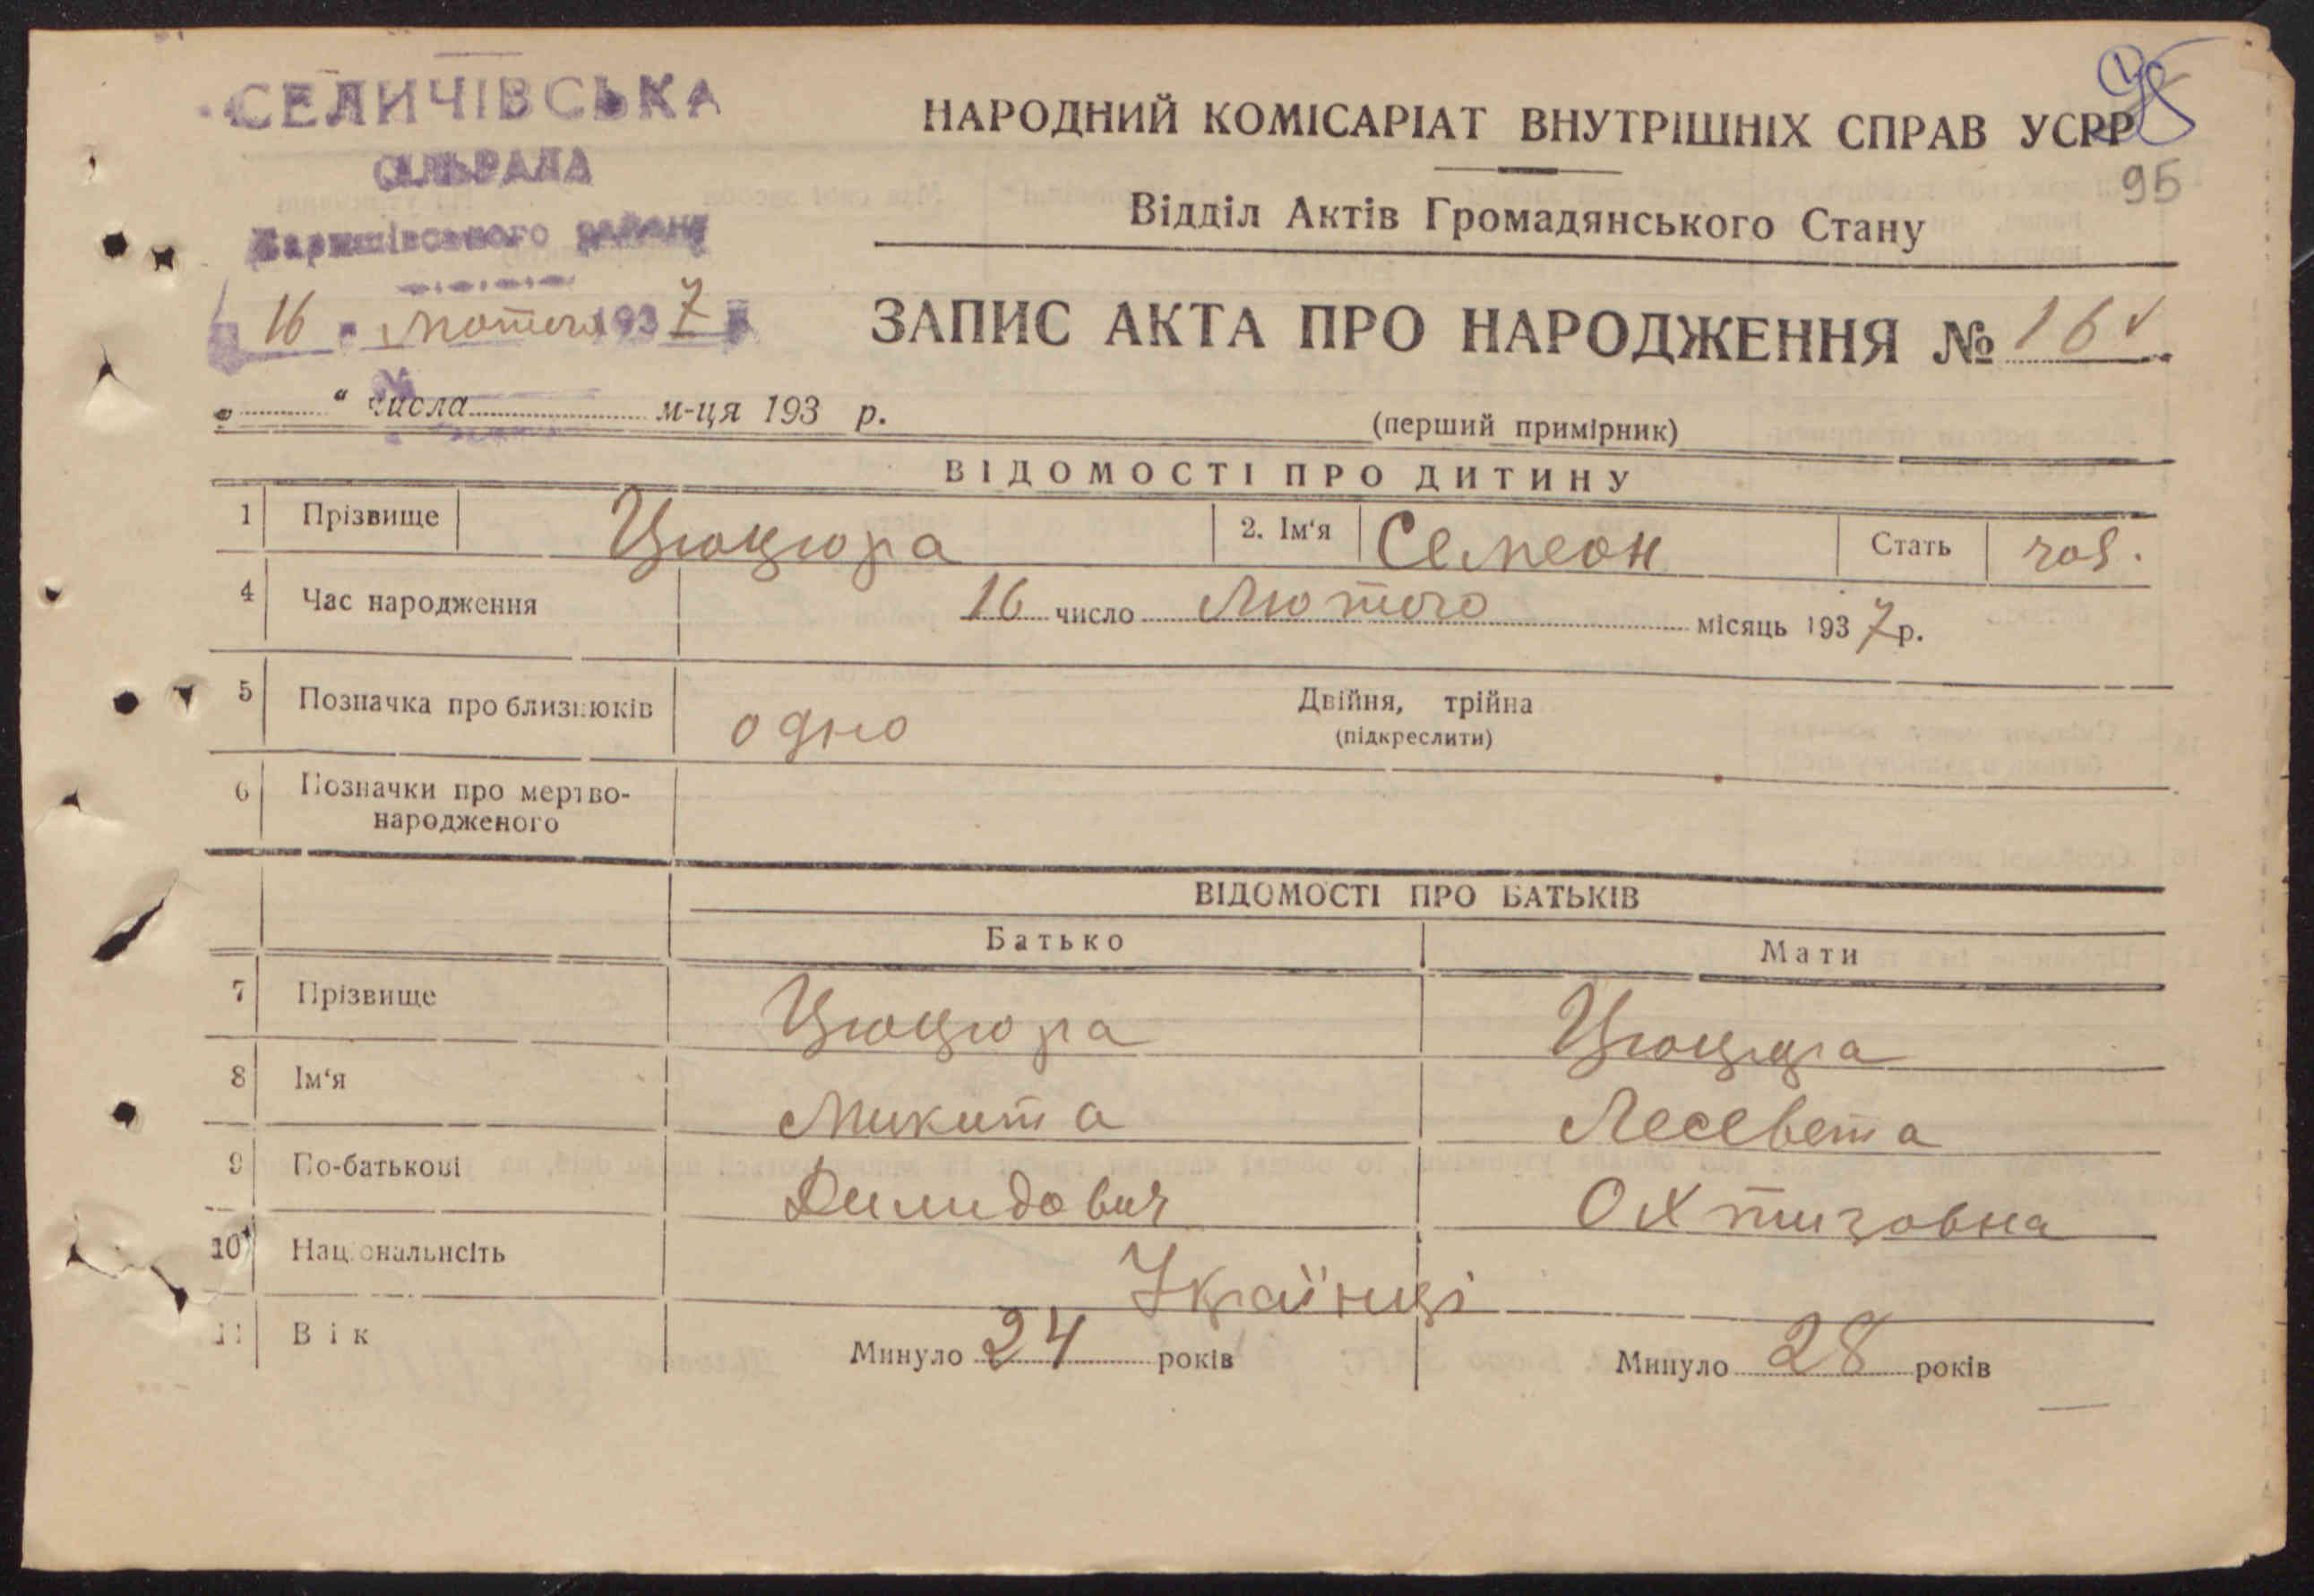 СЕЛИЧІВСЬКА
СІЛЬРАДА
Баришівського району
16 лютого 1937 р
НАРОДНИЙ КОМІСАРІАТ ВНУТРІШНІХ СПРАВ УСРР
95
Відділ Актів Громадянського Стану
ЗАПИС АКТА ПРО НАРОДЖЕННЯ № 16
„ “ числа м-ця 193 р.
(перший примірник)
ВІДОМОСТІ ПРО ДИТИНУ
1 Прізвище Цюцюра 2. Ім‘я Семеон Стать чов.
4 Час народження 16 число Лютого місяць 1937 р.
5 Позначка про близнюків одно Двійня, трійна
(підкреслити)
6 Позначки про мертво-
народженого
ВІДОМОСТІ ПРО БАТЬКІВ
Батько Мати
7 Прізвище Цюцюра Цюцюра
8 Ім‘я Микита Лесевета
9 По-батькові Димидович
10 Національність Українці
11 Вік Минуло 24 років Минуло 28 років